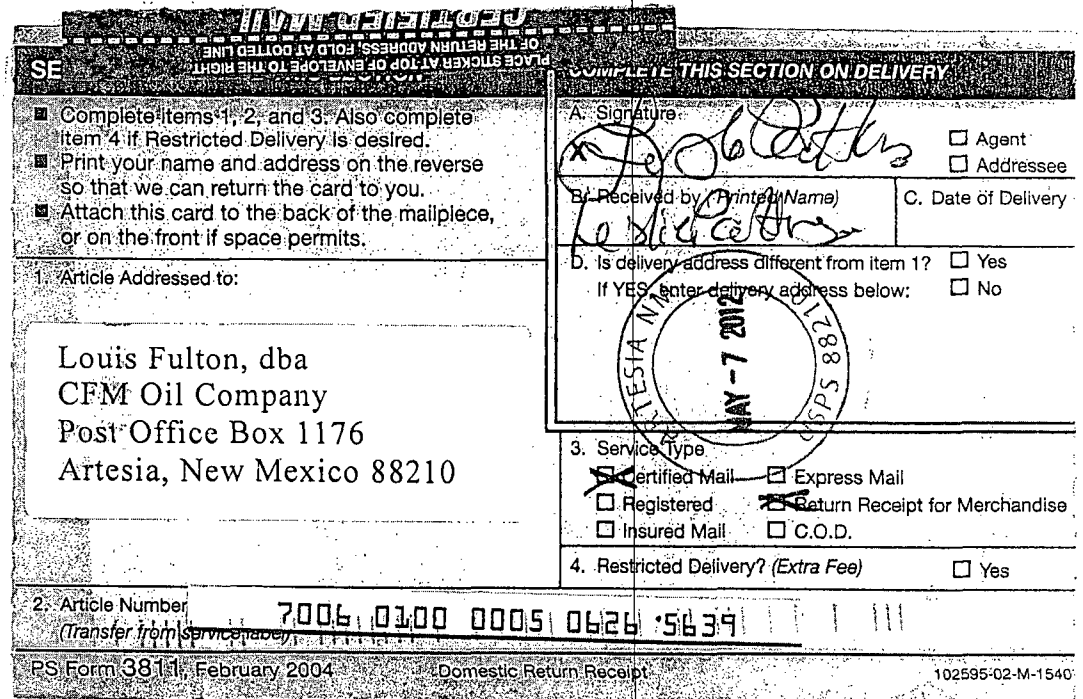 CERTIFIED MAIL
PLACE STICKER AT TOP OF ENVELOPE TO THE RIGHT
OF THE RETURN ADDRESS, FOLD AT DOTTED LINE
SE
■ Complete items 1, 2, and 3. Also complete
item 4 if Restricted Delivery is desired.
■ Print your name and address on the reverse
so that we can return the card to you.
■ Attach this card to the back of the mailpiece,
or on the front if space permits.
1. Article Addressed to:
Louis Fulton, dba
CFM Oil Company
Post Office Box 1176
Artesia, New Mexico 88210
COMPLETE THIS SECTION ON DELIVERY
A. Signature
X
☐ Agent
☐ Addressee
B. Received by (Printed Name)
C. Date of Delivery
D. Is delivery address different from item 1? ☐ Yes
If YES, enter delivery address below: ☐ No
ARTESIA NM
MAY - 7 2012
USPS 88210
3. Service Type
☒ Certified Mail ☐ Express Mail
☐ Registered ☒ Return Receipt for Merchandise
☐ Insured Mail ☐ C.O.D.
4. Restricted Delivery? (Extra Fee) ☐ Yes
2. Article Number
(Transfer from service label)
7006 0100 0005 0626 5639
PS Form 3811, February 2004 Domestic Return Receipt 102595-02-M-1540